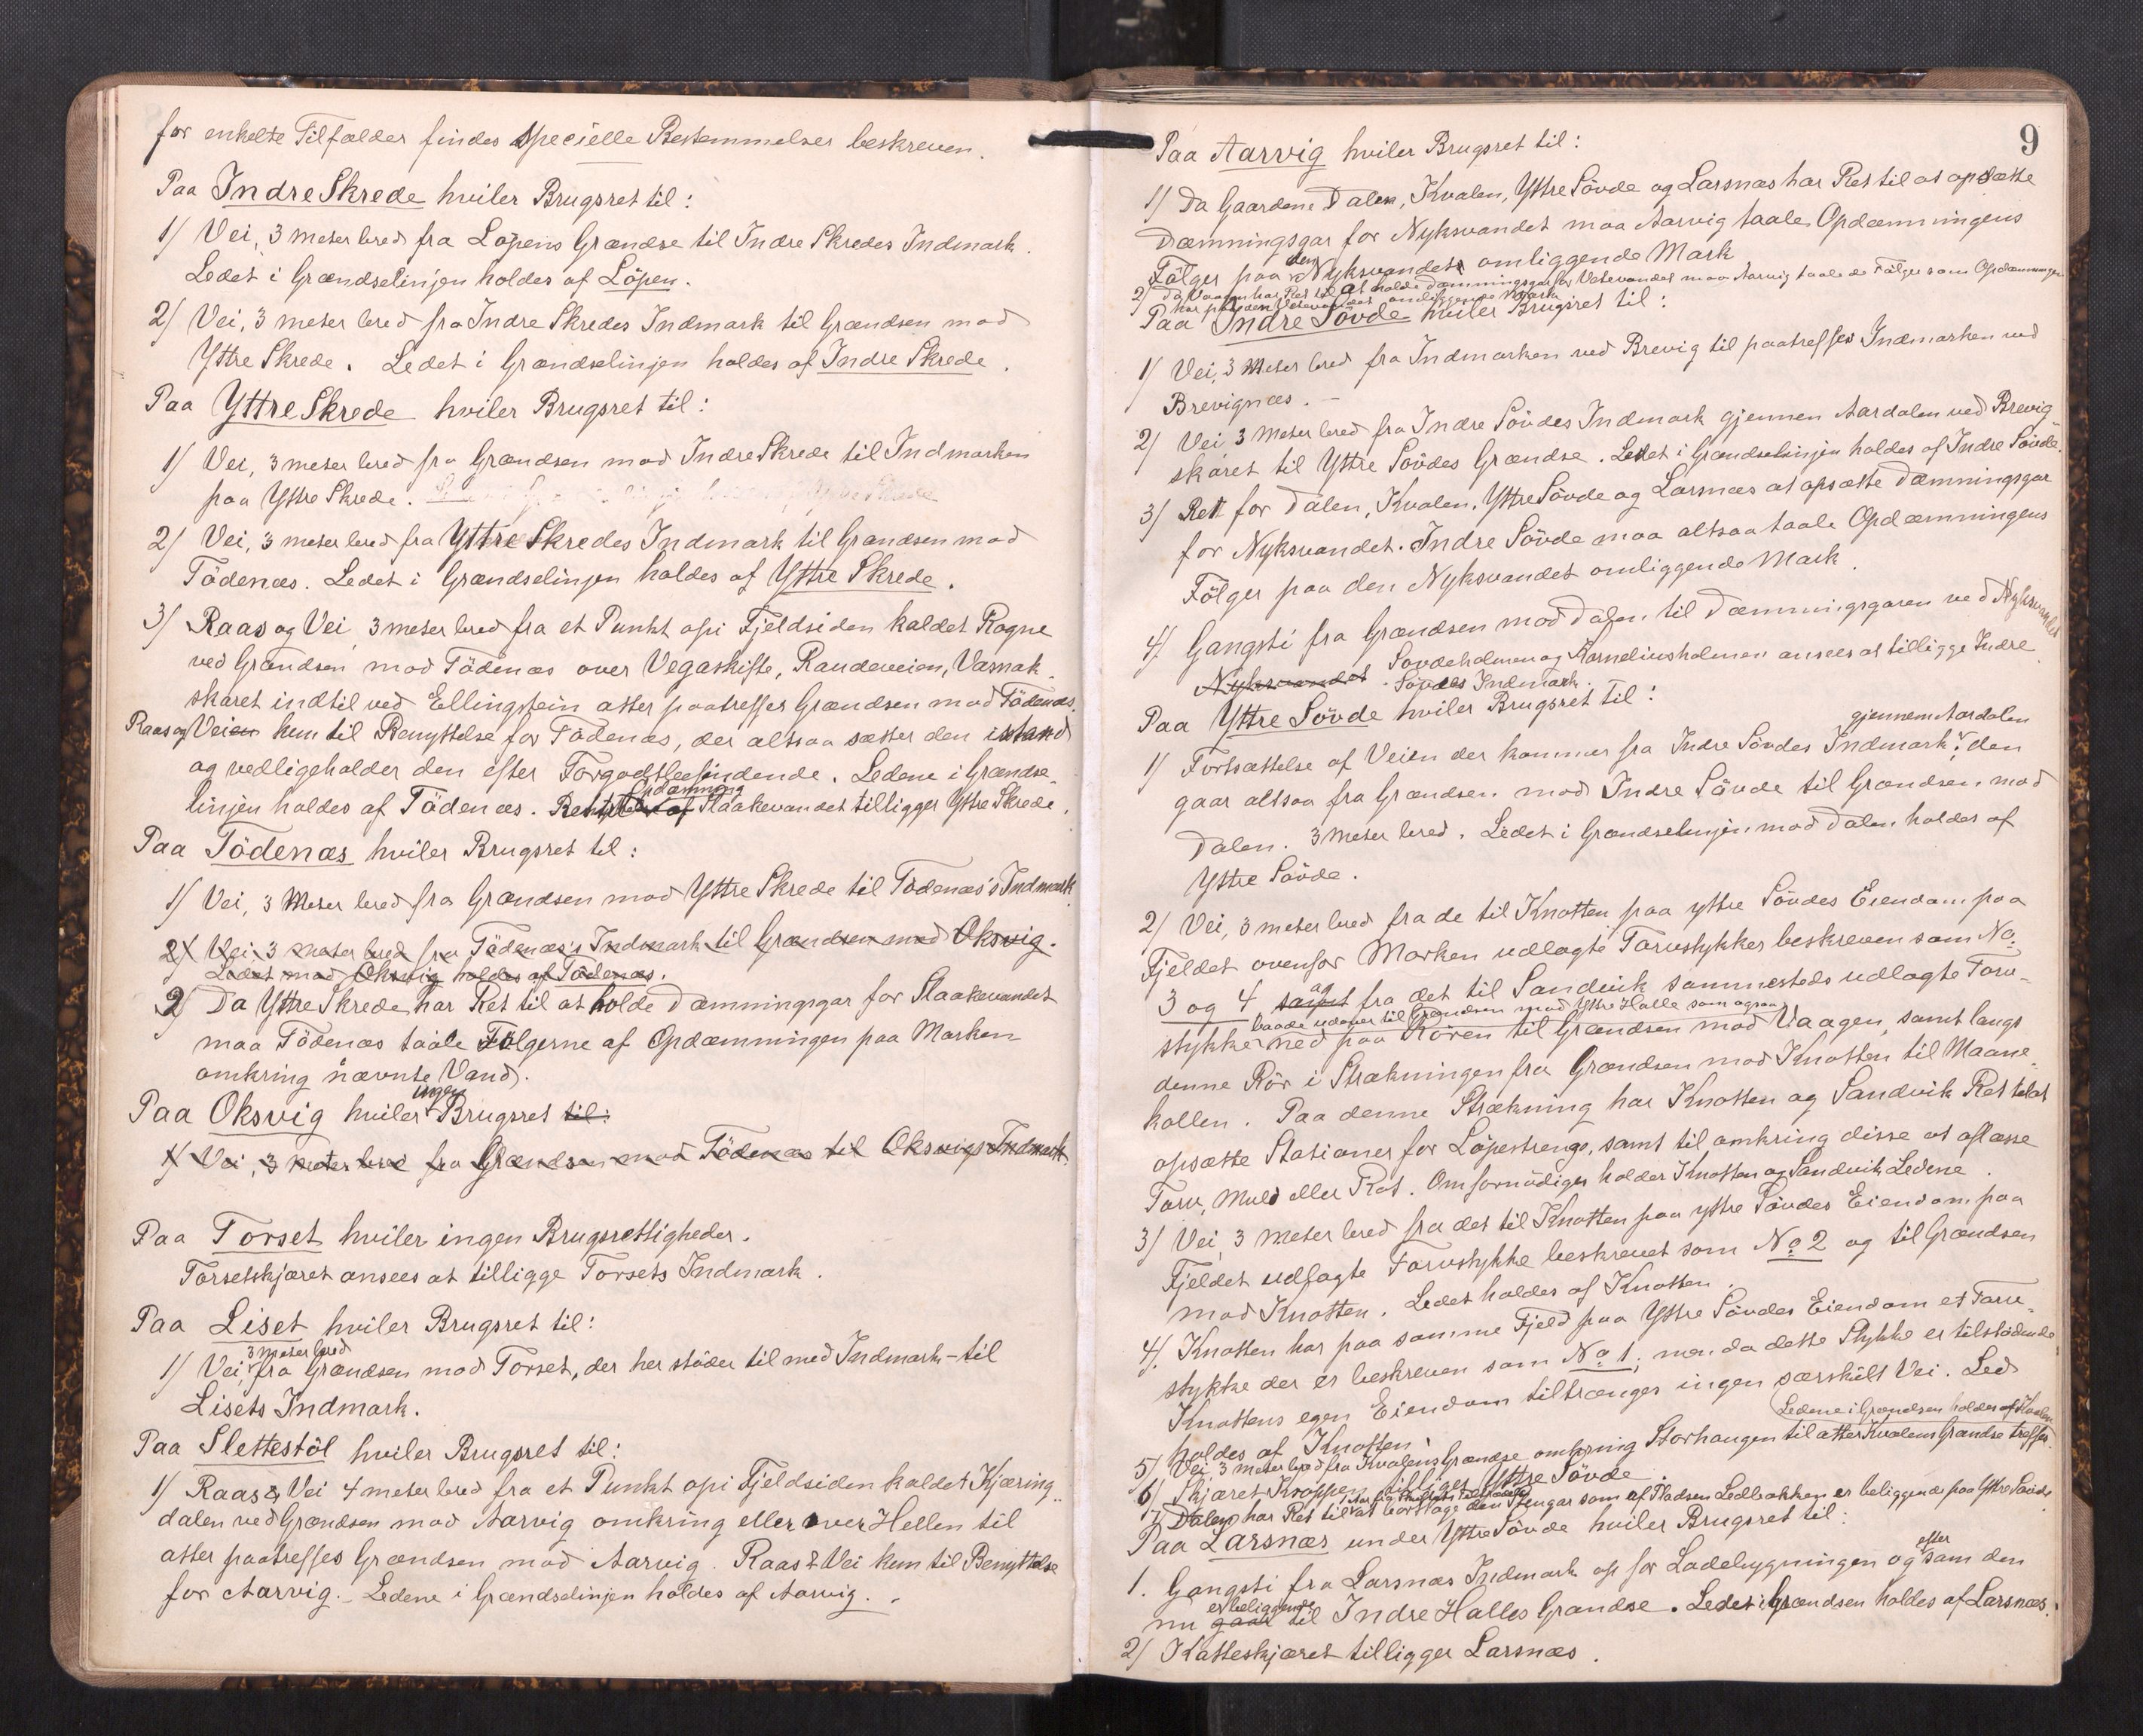 for enkelte Tilfælder findes specielle Bestemmelser beskreven.
Paa Indre Skrede hviler Brugsret til:
1) Vei, 3 meter bred fra Løpens Grændse til Indre Skredes Indmark.
Ledet i Grændselinjen holdes af Löpen.
2) Vei, 3 meter bred fra Indre Skredes Indmark til Grændsen mod
Yttre Skrede. Ledet i Grændselinjen holdes af Indre Skrede.
Paa Yttre Skrede hviler Brugsret til:
1) Vei, 3 meter bred fra Grændsen mod Indre Skrede til Indmarken
paa Yttre Skrede.
2) Vei, 3 meter bred fra Yttre Skredes Indmark til Grændsen mod
Tödenæs. Ledet i Grændselinjen holdes af Yttre Skrede.
3) Raas og Vei 3 meter bred fra et Punkt opi Fjeldsiden kaldet Rogne
ved Grændsen mod Tödenæs over Vegaskifte, Raudeveien, Varnak-
skaret indtil ved Ellingstein atter paatreffes Grændsen mod Tödenæs.
Raas og Veien kun til Benyttelse for Tödenæs, der altsaa sætter den istand
og vedligeholder den efter Forgodtbefindende. Ledene i Grændse-
Opdæmning
linjen holdes af Tödenæs. af Slaakevandet tilligger Yttre Skrede.
Paa Tödenæs hviler Brugsret til:
1) Vei, 3 Meter bred fra Grændsen mod Yttre Skrede til Tödenæs's Indmark.
2) Vei, 3 meter bred fra Tödenæs's Indmark til Grændsen med Oksvig.
Ledet mod Oksvig holdes af Tödenæs.
2) Da Yttre Skrede har Ret til at holde Dæmningsgar for Slaakevandet
maa Tödenæs taale Fölgerne af Opdæmningen paa Marken
omkring nævnte Vand.
ingen
Paa Oksvig hviler Brugsret til:
1) Vei, 3 meter bred fra Grændsen mod Tödenæs til Oksvigs Indmark.
Paa Torset hviler ingen Brugsrettigheder.
Torsetskjæret ansees at tilligge Torsets Indmark.
Paa Liset hviler Brugsret til:
3 meter bred
1) Vei, fra Grændsen mod Torset, der her stöder til med Indmark - til
Lisets Indmark.
Paa Slettestöl hviler Brugsret til:
1) Raas & Vei 4 meter bred fra et Punkt opi Fjeldsiden kaldet Kjæring-
dalen ved Grændsen mod Aarvig omkring eller over Hellen til
atter paatreffes Grændsen mod Aarvig. Raas & Vei kun til Benyttelse
for Aarvig. Ledene i Grændselinjen holdes af Aarvig.
9
Paa Aarvig hviler Brugsret til:
1) Da Gaardene Dalen, Kvalen, Yttre Sövde og Larsnæs har Ret til at opsætte
Dæmningsgar for Nyksvandet maa Aarvig taale Opdæmningens
den
Fölger paa Nyksvandet omliggende Mark
2) Da Vaagen har Ret til at holde Dæmningsgar for Vatevandet maa Aarvig taale de Fölger som Opdæmningen
har paa den Vatevandet omliggende Mark
Paa Indre Sövde hviler Brugsret til:
1) Vei, 3 Meter bred fra Indmarken ved Brevig til paatreffes Indmarken ved
Brevignæs. -
2) Vei 3 Meter bred fra Indre Sövdes Indmark gjennem Aardalen ved Brevig-
skaret til Yttre Sövdes Grændse. Ledet i Grændselinjen holdes af Indre Sövde.
3) Ret for Dalen, Kvalen, Yttre Sövde og Larsnæs at opsætte Dæmningsgar
for Nyksvandet. Indre Sövde maa altsaa taale Opdæmningens
Fölger paa den Nyksvandet omliggende Mark.
4) Gangsti fra Grændsen mod Dalen til Dæmningsgaren ved Nyksvandet
Nyksvandet. Sovdeholmen og Korneliusholmen ansees at tilligge Indre
Sövdes Indmark.
Paa Yttre Sövde hviler Brugsret til:
gjennem Aardalen
1) Fortsættelse af Veien der kommer fra Indre Sövdes Indmark; den
gaar altsaa fra Grændsen mod Indre Sövde til Grændsen mod
Dalen. 3 Meter bred. Ledet i Grændselinjen mod Dalen holdes af
Yttre Sövde.
2) Vei, 3 meter bred fra de til Knotten paa yttre Sövdes Eiendom paa
Fjeldet ovenfor Marken udlagte Torvstykker beskreven som No
3 og 4 samt og fra det til Sandvik sammesteds udlagte Torv-
baade udover til Grændsen mod Yttre Halle som ogsaa
stykke ned paa Rören til Grændsen mod Vaagen, samt langs
denne Rör i Strækningen fra Grændsen mod Knotten til Maane-
kollen. Paa denne Strækning har Knotten og Sandvik Ret til at
opsætte Stationer for Löpestrenge, samt til omkring disse at oplæsse
Torv, Muld eller Rot. Om fornödiges holder Knotten og Sandvik Ledene.
3) Vei, 3 Meter bred fra det til Knotten paa yttre Sövdes Eiendom paa
Fjeldet udlagte Torvstykke beskrevet som No 2 og til Grændsen
mod Knotten. Ledet holdes af Knotten.
4) Knotten har paa samme Fjeld paa Yttre Sövdes Eiendom et Torv-
stykke der er beskreven som No 1; men da dette Stykke er tilstödende
Knottens egen Eiendom tiltrænges ingen særskilt Vei. Led
holdes af Knotten.
Ledene i Grændsen holdes af Kvalen
5) Vei, 3 meter bred fra Kvalens Grændse omkring Storhaugen til atter Kvalens Grændse treffes.
6) Skjæret Kroppen tilligger Yttre Sövde.
7) Dalen har Ret til at borttage den Stengar som af Pladsen Ledbakken er beliggende paa Yttre Sövde
Paa Larsnæs under Yttre Sövde hviler Brugsret til:
efter
1. Gangsti fra Larsnæs Indmark op for Ladebygningen og som den
er beliggende
nu gaar til Indre Halles Grændse. Ledet i Grændsen holdes af Larsnæs.
2) Katteskjæret tilligger Larsnæs.